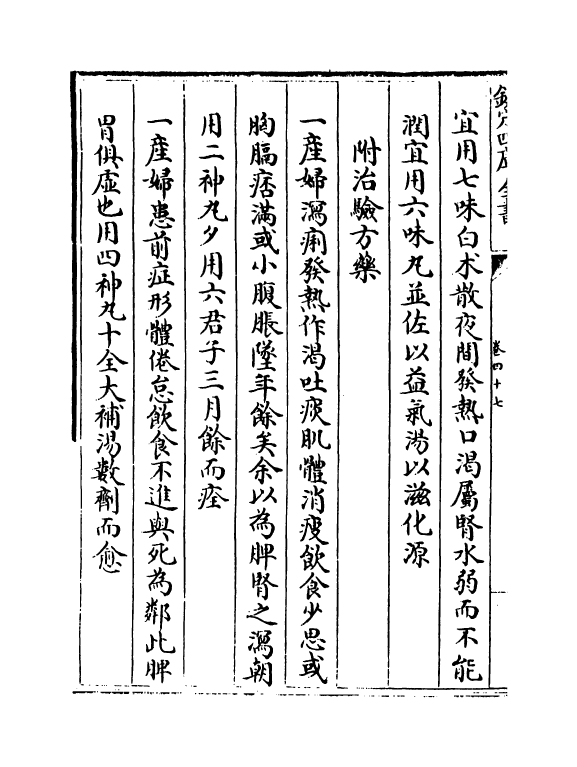 欽定四庫全書
卷四十七
宜用七味白术散夜間發熱口渴屬腎水弱而不能
潤宜用六味丸並佐以益氣湯以滋化源
附治驗方藥
一産婦瀉痢發熱作渴吐痰肌體消瘦飲食少思或
胸膈痞滿或小腹脹墜年餘矣余以為脾腎之瀉朝
用二神丸夕用六君子三月餘而痊
一産婦患前症形體倦怠飲食不進與死為鄰此脾
胃俱虛也用四神丸十全大補湯數劑而愈